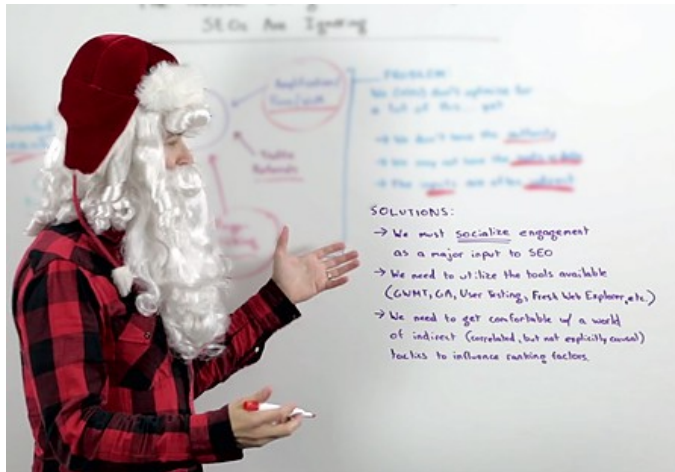 SEOs Are Ignoring
Amplification/
PROBLEM:
We (SEOs) don't optimize for
a lot of this... yet
→ We don't have the authority
→ We may not have the
→ The inputs are often indirect
Traffic
Referrals
SOLUTIONS:
→ We must socialize engagement
as a major input to SEO
→ We need to utilize the tools available
(GWMT, GA, User Testing, Fresh Web Explorer, etc.)
→ We need to get comfortable w/ a world
of indirect (correlated, but not explicitly causal)
tactics to influence ranking factors.